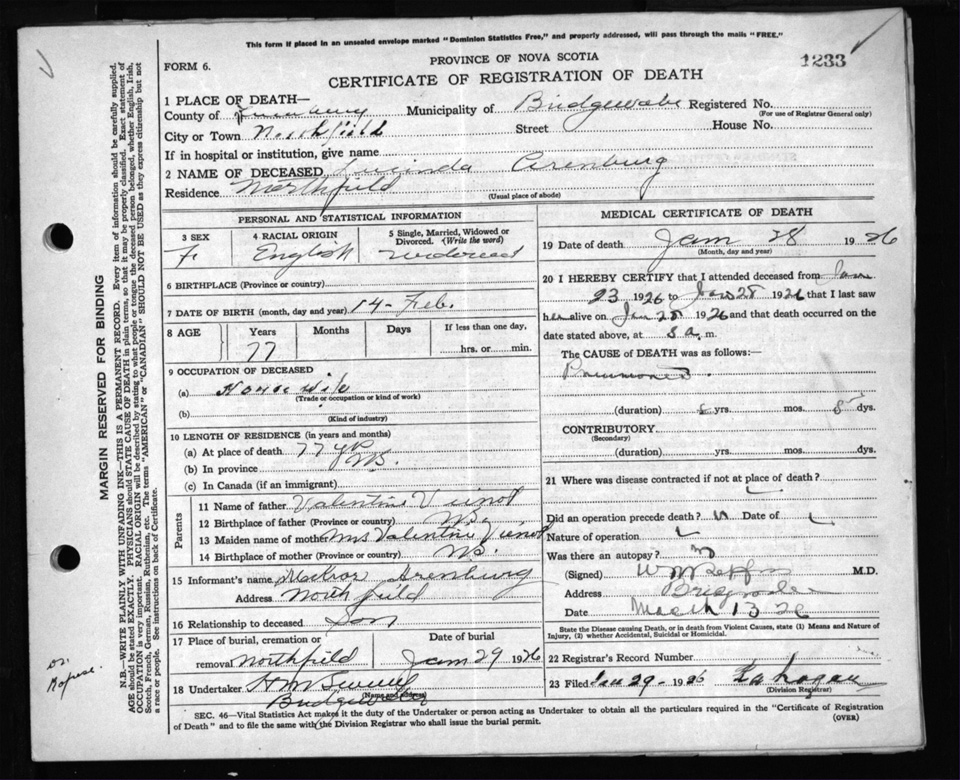 This form if placed in an unsealed envelope marked "Dominion Statistics Free," and properly addressed, will pass through the mails "FREE."
FORM 6.
PROVINCE OF NOVA SCOTIA
1233
CERTIFICATE OF REGISTRATION OF DEATH
1 PLACE OF DEATH—
County of Municipality of Registered No.
(For use of Registrar General only)
City or Town Northfield Street House No.
If in hospital or institution, give name
2 NAME OF DECEASED Lucinda Arenburg
Residence Northfield (Usual place of abode)
PERSONAL AND STATISTICAL INFORMATION
3 SEX 4 RACIAL ORIGIN 5 Single, Married, Widowed or Divorced. (Write the word)
F. English
6 BIRTHPLACE (Province or country)
7 DATE OF BIRTH (month, day and year) 14 - Feb.
8 AGE Years Months Days If less than one day,
77 hrs. or min.
9 OCCUPATION OF DECEASED
(a) House wife
(Trade or occupation or kind of work)
(b)
(Kind of industry)
10 LENGTH OF RESIDENCE (in years and months)
(a) At place of death 77 yrs
(b) In province
(c) In Canada (if an immigrant)
Parents
11 Name of father Valentine Veinot
12 Birthplace of father (Province or country)
13 Maiden name of mother Mrs Valentine Veinot
14 Birthplace of mother (Province or country)
15 Informant's name Arenburg
Address Northfield
16 Relationship to deceased Son
17 Place of burial, cremation or removal Northfield
Date of burial
Jan 29 1926
18 Undertaker
(Name and address)
MEDICAL CERTIFICATE OF DEATH
19 Date of death Jan 28 1926
(Month, day and year)
20 I HEREBY CERTIFY that I attended deceased from
23 1926 to Jan 28 1926 that I last saw
her alive on Jan 28 1926 and that death occurred on the
date stated above, at a. m.
The CAUSE of DEATH was as follows:
Pneumonia
(duration) yrs. mos. dys.
CONTRIBUTORY
(Secondary)
(duration) yrs. mos. dys.
21 Where was disease contracted if not at place of death?
Did an operation precede death? Date of
Nature of operation
Was there an autopsy?
(Signed) M.D.
Address
Date March 13 26
State the Disease causing Death, or in death from Violent Causes, state (1) Means and Nature of Injury, (2) whether Accidental, Suicidal or Homicidal.
22 Registrar's Record Number
23 Filed Jan 29 - 1926
(Division Registrar)
SEC. 46—Vital Statistics Act makes it the duty of the Undertaker or person acting as Undertaker to obtain all the particulars required in the "Certificate of Registration
of Death" and to file the same with the Division Registrar who shall issue the burial permit. (OVER)
MARGIN RESERVED FOR BINDING
N.B.—WRITE PLAINLY WITH UNFADING INK—THIS IS A PERMANENT RECORD. Every item of information should be carefully supplied.
AGE should be stated EXACTLY. PHYSICIANS should STATE CAUSE OF DEATH in plain terms, so that it may be properly classified. Exact statement of
OCCUPATION is very important. RACIAL ORIGIN will be described by stating to what people or tongue the deceased person belonged, whether English, Irish,
Scotch, French, German, Russian, Ruthenian, etc. The terms "AMERICAN" or "CANADIAN" SHOULD NOT BE USED as they express citizenship but not
a race or people. See instructions on back of Certificate.
Dr.